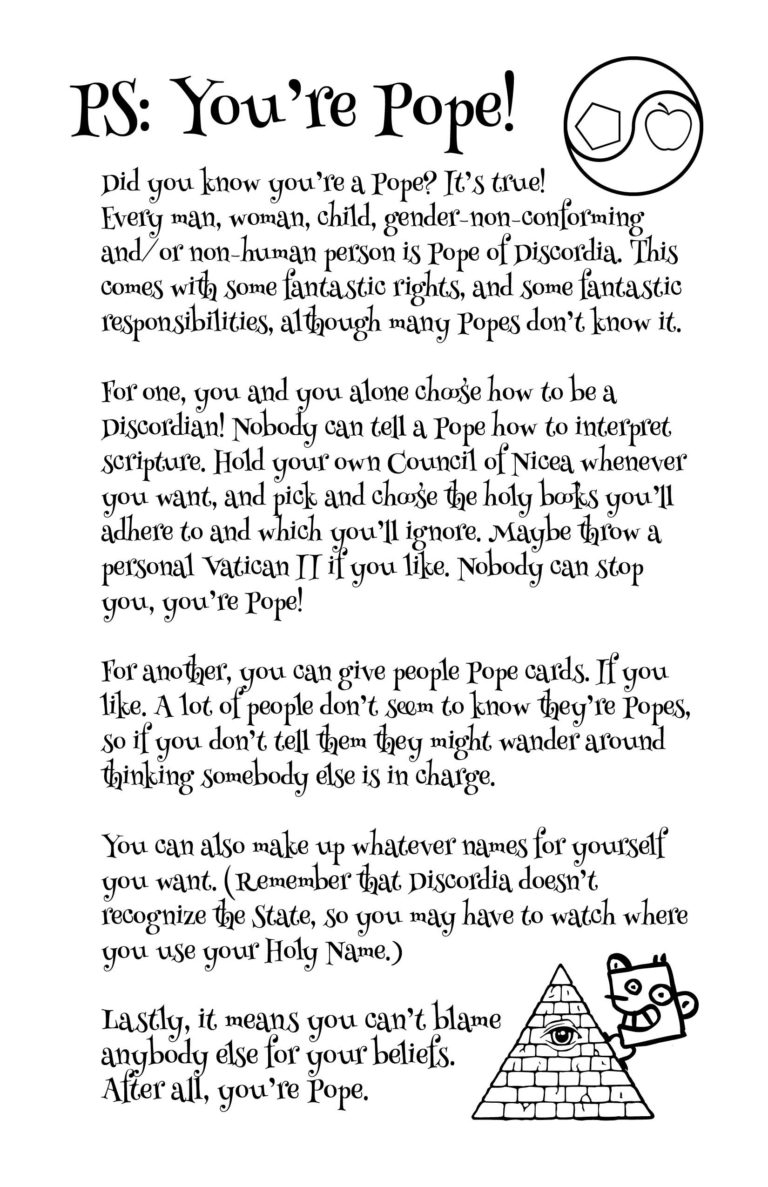 PS: You're Pope!
Did you know you're a Pope? It's true!
Every man, woman, child, gender-non-conforming
and/or non-human person is Pope of Discordia. This
comes with some fantastic rights, and some fantastic
responsibilities, although many Popes don't know it.
For one, you and you alone choose how to be a
Discordian! Nobody can tell a Pope how to interpret
scripture. Hold your own Council of Nicea whenever
you want, and pick and choose the holy books you'll
adhere to and which you'll ignore. Maybe throw a
personal Vatican II if you like. Nobody can stop
you, you're Pope!
For another, you can give people Pope cards. If you
like. A lot of people don't seem to know they're Popes,
so if you don't tell them they might wander around
thinking somebody else is in charge.
You can also make up whatever names for yourself
you want. (Remember that Discordia doesn't
recognize the State, so you may have to watch where
you use your Holy Name.)
Lastly, it means you can't blame
anybody else for your beliefs.
After all, you're Pope.